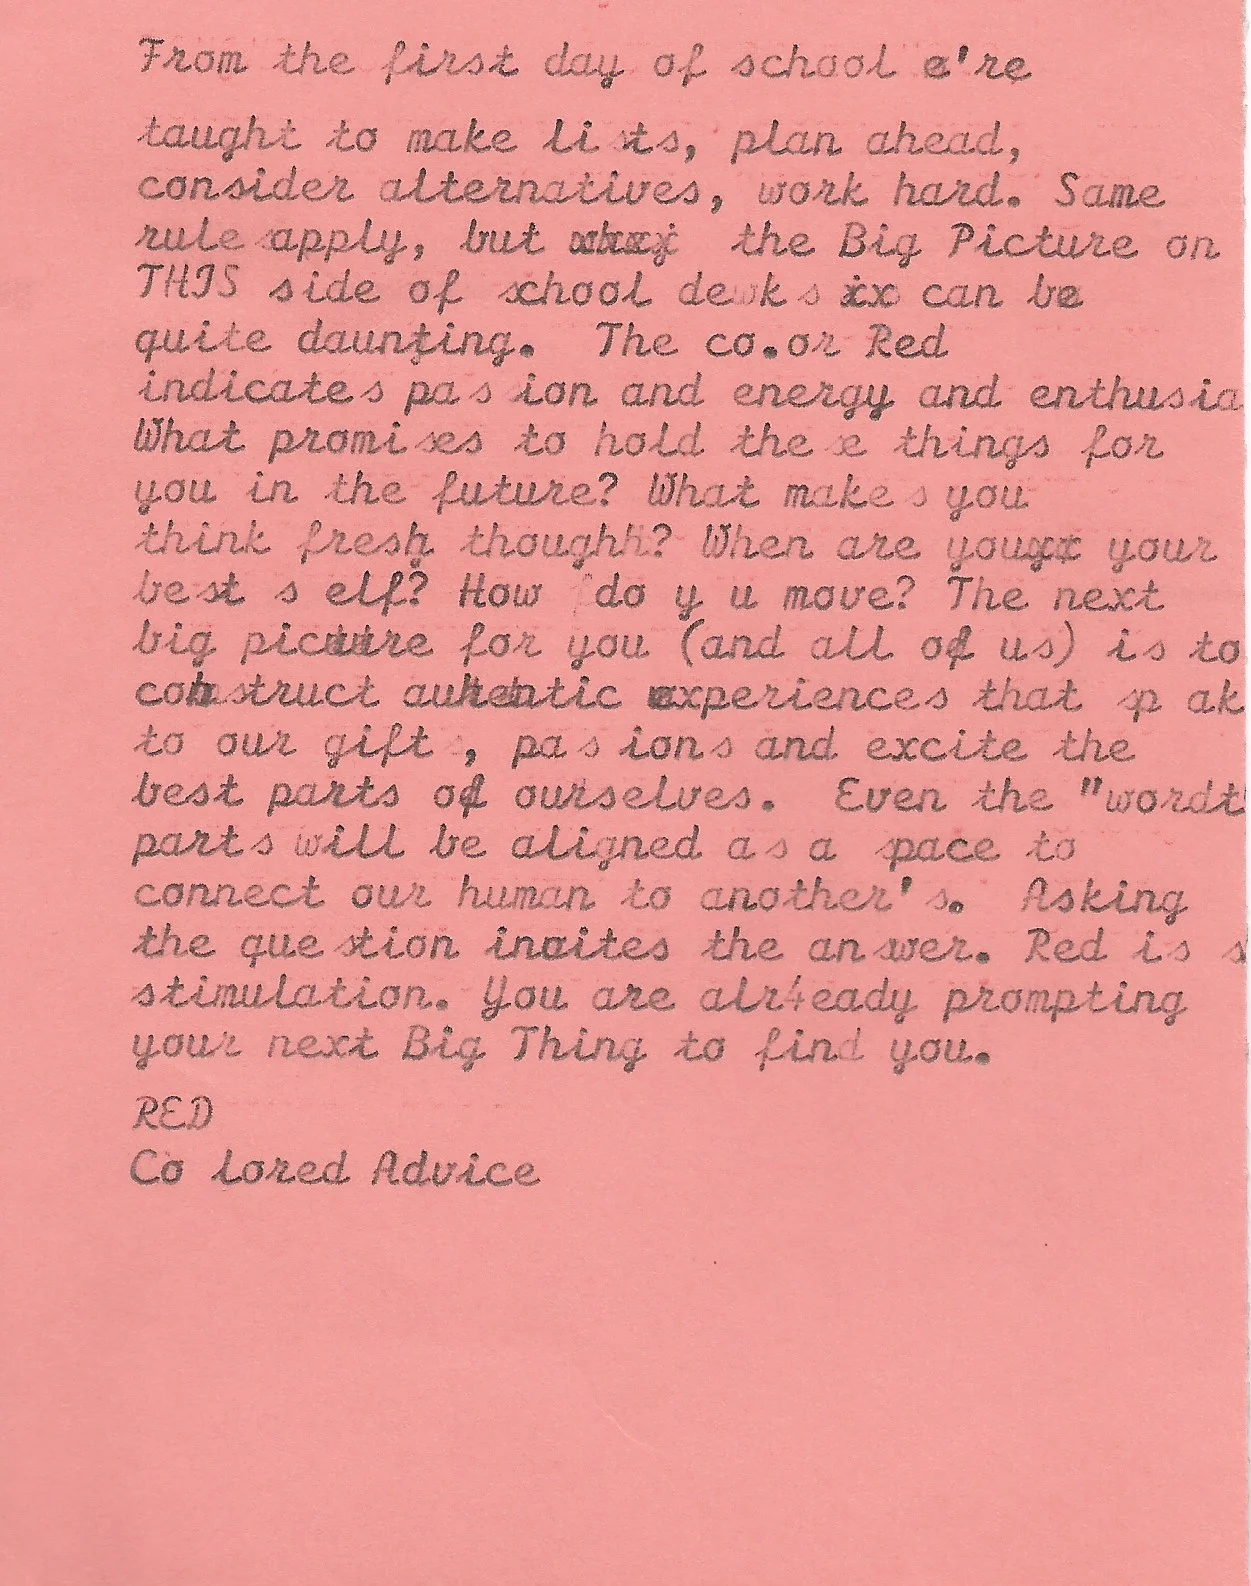 From the first day of school e're
taught to make lists, plan ahead,
consider alternatives, work hard. Same
rule apply, but the Big Picture on
THIS side of school dewk s xx can be
quite daunting. The co.or Red
indicates pas ion and energy and enthusia
What promises to hold these things for
you in the future? What makes you
think fresh thoughh? When are youxx your
best s elf? How do y u move? The next
big picture for you (and all of us) is to
construct authentic experiences that sp ak
to our gifts, pas ions and excite the
best parts of ourselves. Even the "wordt
parts will be aligned as a space to
connect our human to another's. Asking
the question invites the answer. Red is s
stimulation. You are alr4eady prompting
your next Big Thing to find you.
RED
Co lored Advice